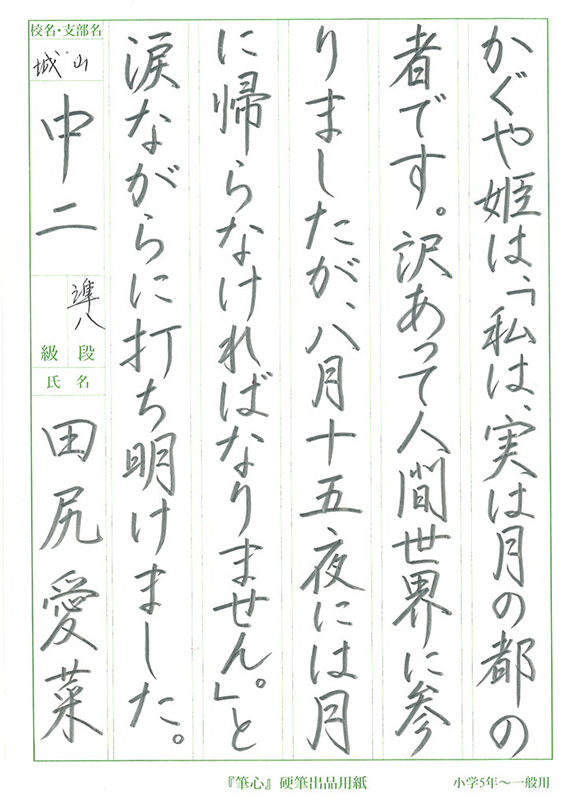 かぐや姫は、「私は、実は月の都の
者です。訳あって人間世界に参
りましたが、八月十五夜には月
に帰らなければなりません。」と
涙ながらに打ち明けました。
校名・支部名
城山
中二
準八
級 段
氏 名
田尻愛菜
『筆心』硬筆出品用紙
小学5年〜一般用